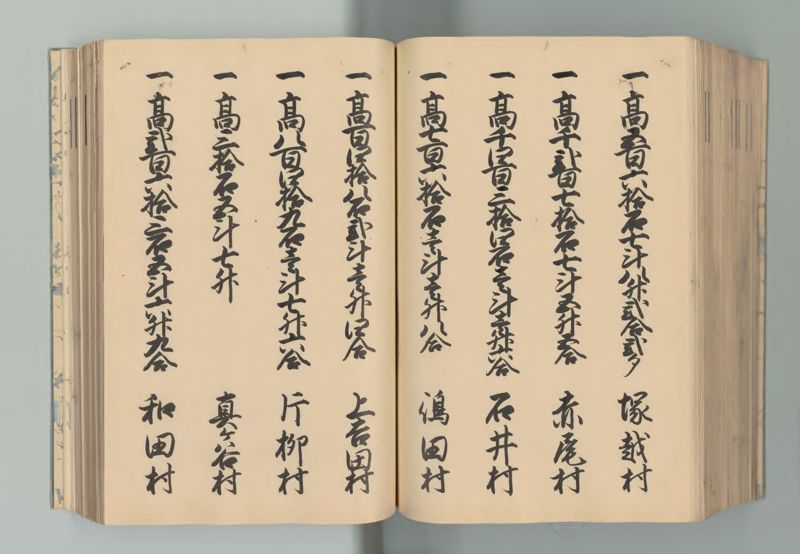 一 高五百六拾石七斗八升弐合弐夕 塚越村
一 高千弐百七拾石七斗五升五合 赤尾村
一 高千四百三拾四石壱斗三升六合 石井村
一 高七百六拾石壱斗壱升八合 嶋田村
一 高百四拾八石弐斗壱升四合 上吉田村
一 高八百四拾九石壱斗七升六合 片柳村
一 高三拾石五斗七升 真ヶ谷村
一 高弐百六拾三石五斗六升九合 和田村